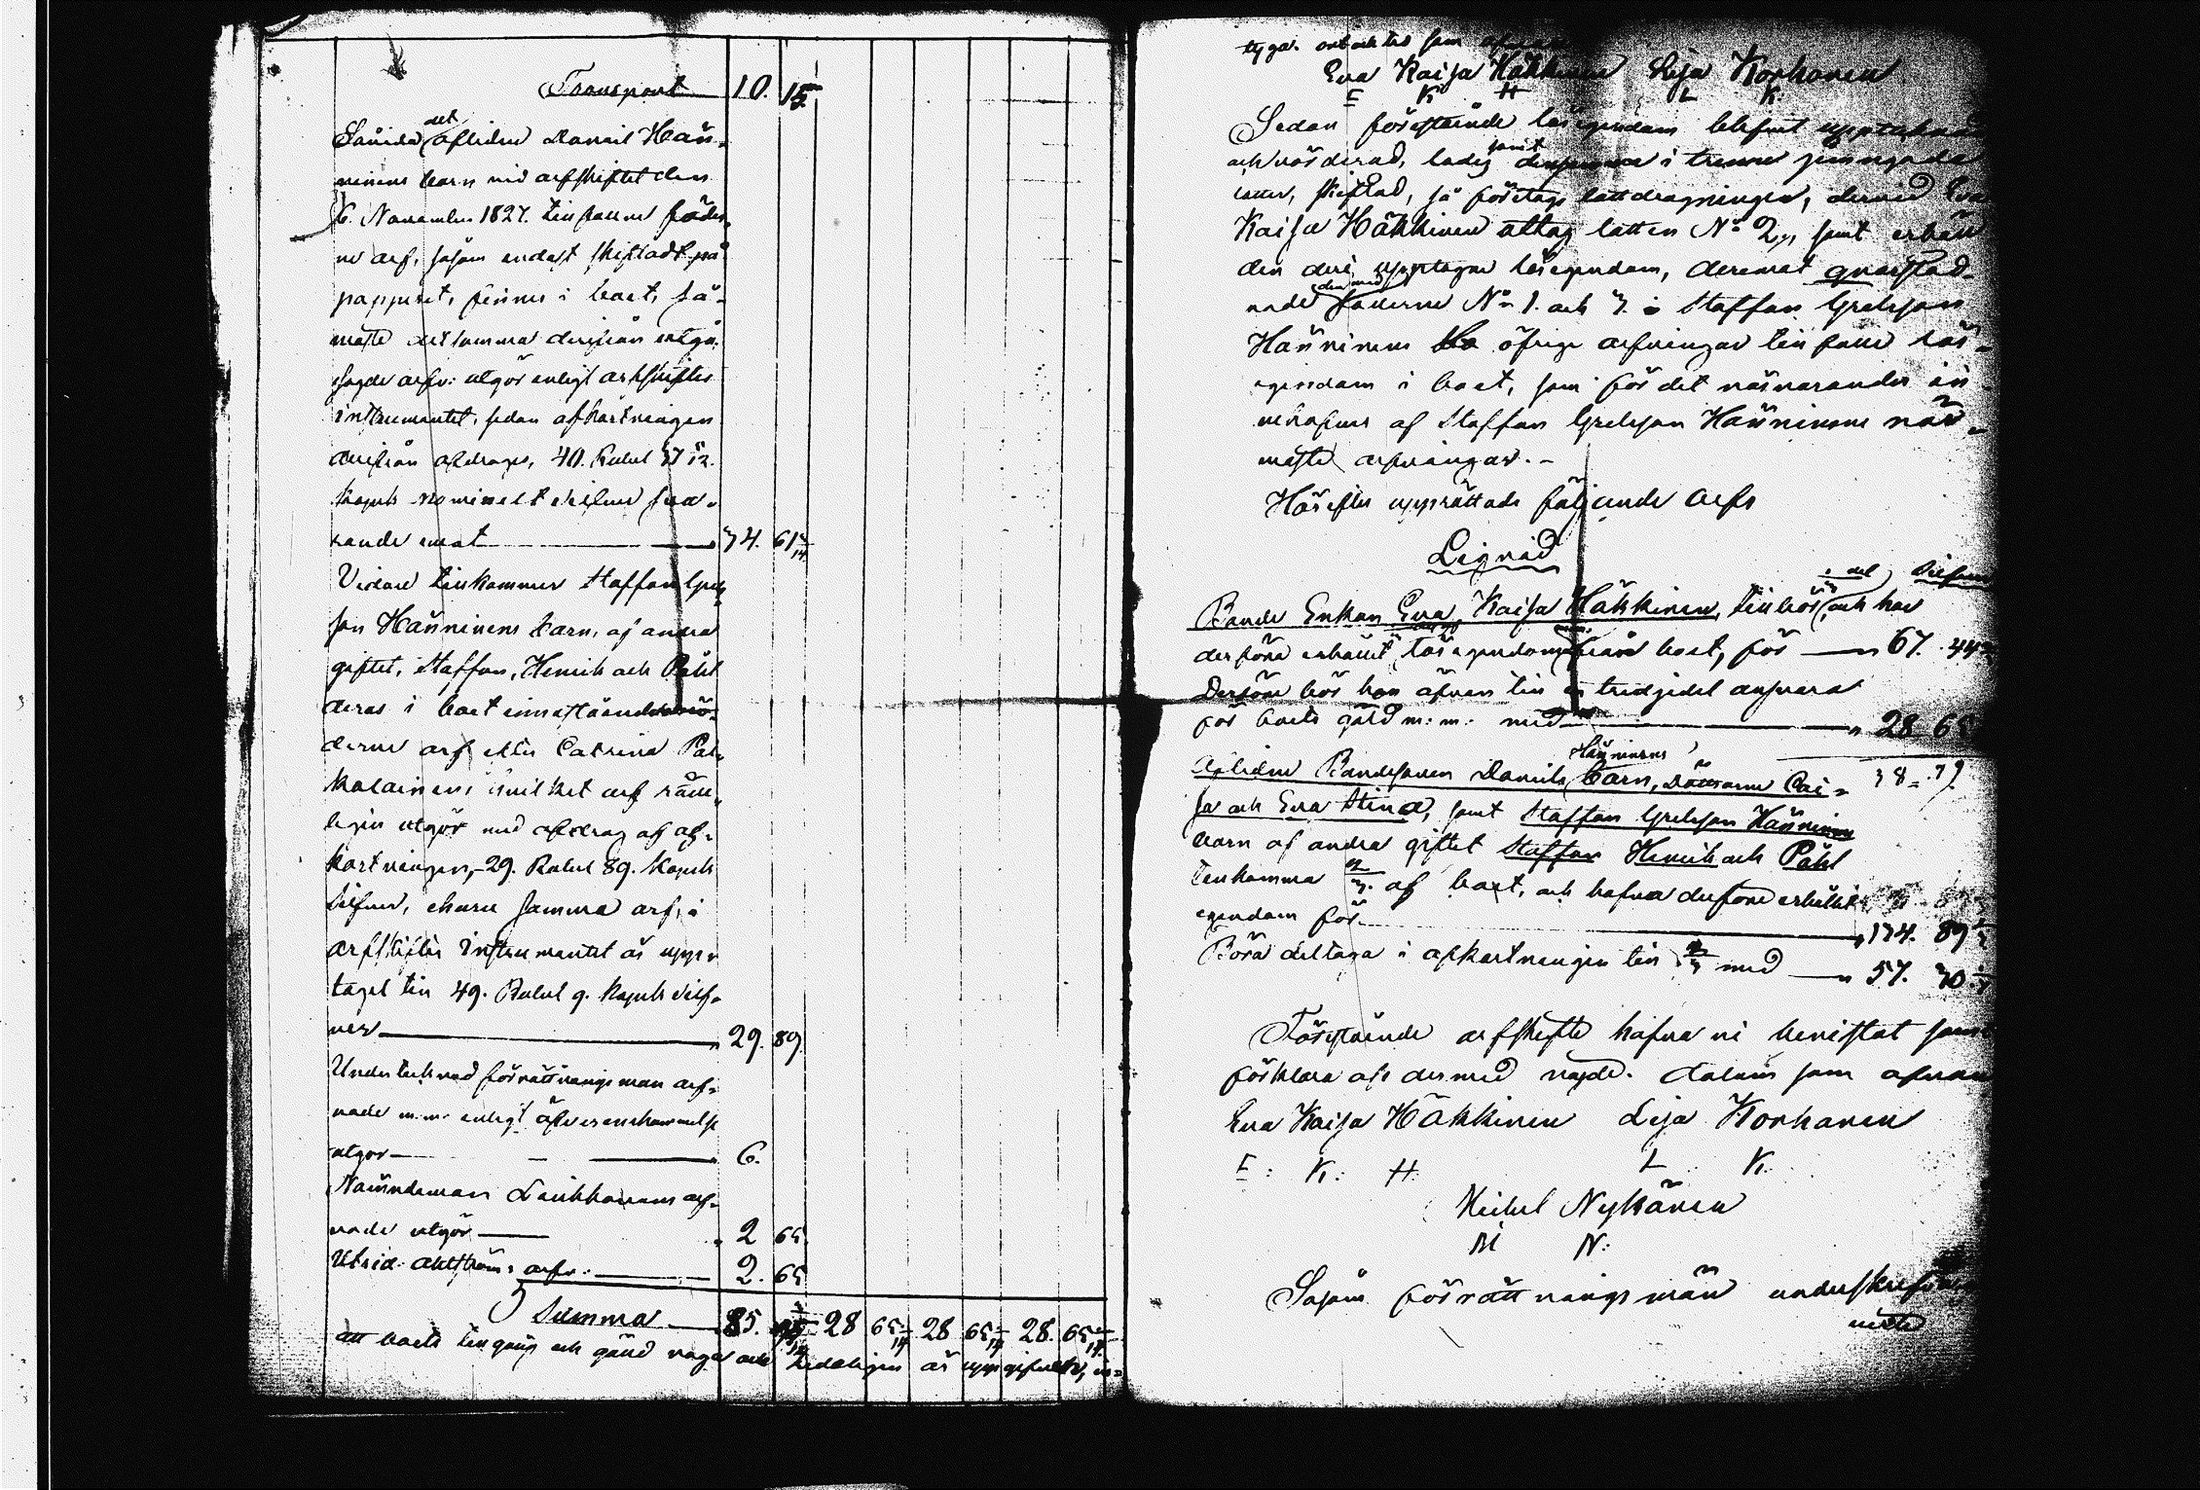 Transport 10. 15
det
Såvida afliden Daniel Hän-
ninens barn vid arfskiftet den
6. November 1827. tillfallne fäder-
ne arf, såsom endast skiftadt på
pappuret, finnes i boet, så
måste detsamma derifrån utgå.
sagde arf: utgör enligt arfskiftes
instrumentet, sedan afkortningen
derifrån afdrages, 40. Rubel
kopek nominelt silfver sva-
rande emot 34. 61
Vidare tillkommer Staffan Grels-
son Hänninens barn, af andra
giftet, Staffan, Henrik och Påhl
deras i boet innestående mö-
derne arf efter Catrina Pak-
kalainen; hvilket arf näm-
ligen utgör med afdrag af af-
kortningen, 29. Rubel 89. Kopek
Silfver, ehuru samma arf, i
arfskiftes instrumentet är upp-
taget till 49. Rubel 9. kopek silf-
ver 29. 89.
Undertecknad förrättningsman arf-
vode m.m. enligt öfverenskommelse
utgör 6.
Nämndeman Laukkanens arf-
vode utgör 2 65.
Utrid. Ahlströms arfv: 2. 65
Summa 85. 28 65 28 65 28. 65
att boets tillgång och gäld noga och redeligen är uppgifvet,
tyga. ort och tid som
Eva Kaisa Häkkinen Lisa Korhonen
E K H L K
Sedan föreståndne lösegendom blifvit upptecknad
och värderad, lades samt i trenne jemngoda
lotter, skiftad, så företogs lottdragningen, dervid Eva
Kaisa Häkkinen uttog lotten No 2, samt erhöll
den deri upptagne lösegendom, deremot qvarstad-
nade den med loderne No 1. och 3. Staffan Grelsson
Hänninens öfrige arfvingar tillfalle lös-
egendom i boet, som för det närvarande in-
nehafves af Staffan Grelsson Hänninens när-
maste arfvingar.
Härefter upprättades följande arfs
Liqvid
Silfver
Bonde Enkan Eva Kaisa Häkkinen, tillhör del och har
derföre erhållit lösegendom från boet, för 67. 44
Derföre bör hon äfven till en tredjedel ansvara
för boets gäld m: m: med 28 65
38. 79
Hänninens
Aflidne Bondesonen Daniels barn, Döttrarne Cai-
sa och Eva Stina, samt Staffan Grelsson Hänninens
barn af andra giftet Staffan Henrik och Påhl
tillkomma 2/3. af boet, och hafva derföre erhållit
egendom för 134. 89
Böra deltaga i afkortningen till 2/3 med 57. 30
Föreståndne arfskifte hafva vi bevistat samt
förklara oss dermed nöjde. datum som ofvan
Eva Kaisa Häkkinen Lisa Korhonen
E: K: H L K:
Michel Nykänen
M N:
Såsom förrättningsmän underskrifver